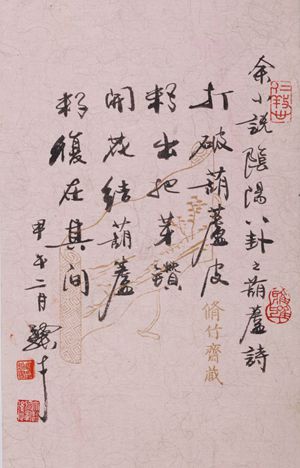 余小說陰陽八卦之葫蘆詩
打破葫蘆皮
籽出把芽鑽
開花結葫蘆
籽復在其間
甲午二月驥才
脩竹齋藏